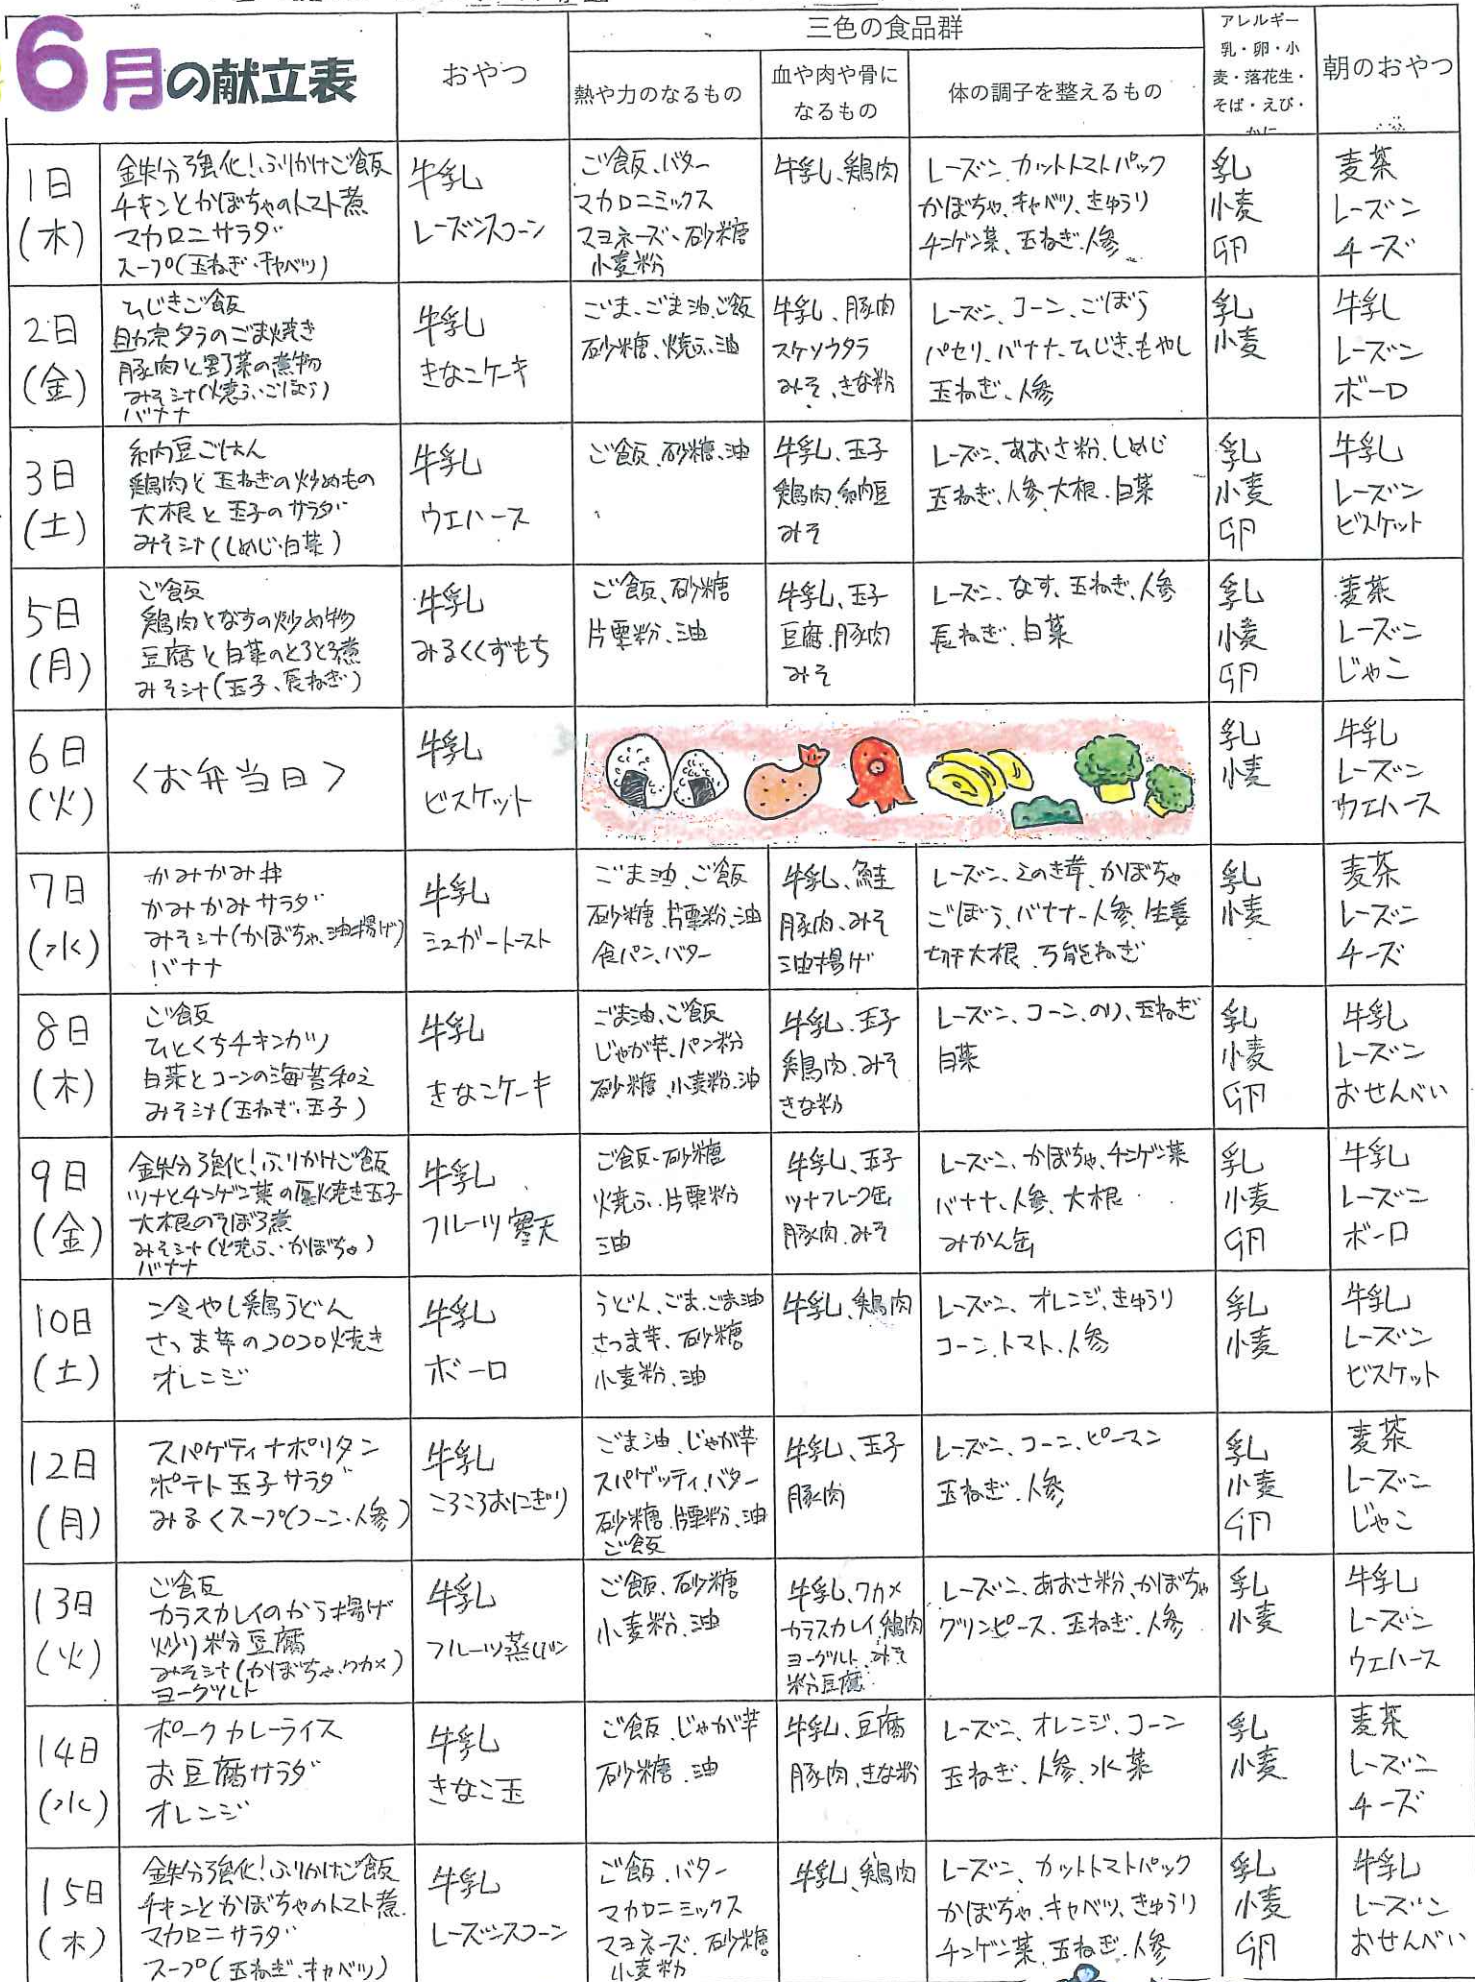 6月の献立表
おやつ
三色の食品群
熱や力のなるもの
血や肉や骨に
なるもの
体の調子を整えるもの
アレルギー
乳・卵・小
麦・落花生・
そば・えび・
かに
朝のおやつ
1日
(木)
鉄分強化!ふりかけご飯
チキンとかぼちゃのトマト煮
マカロニサラダ
スープ(玉ねぎ・キャベツ)
牛乳
レーズンスコーン
ご飯、バター
マカロニミックス
マヨネーズ、砂糖
小麦粉
牛乳、鶏肉
レーズン、カットトマトパック
かぼちゃ、キャベツ、きゅうり
チンゲン菜、玉ねぎ、人参
乳
小麦
卵
麦茶
レーズン
チーズ
2日
(金)
ひじきご飯
助宗タラのごま焼き
豚肉と野菜の煮物
みそ汁(焼ふ、ごぼう)
バナナ
牛乳
きなこケーキ
ごま、ごま油、ご飯
砂糖、焼ふ、油
牛乳、豚肉
スケソウタラ
みそ、きな粉
レーズン、コーン、ごぼう
パセリ、バナナ、ひじき、もやし
玉ねぎ、人参
乳
小麦
牛乳
レーズン
ボーロ
3日
(土)
納豆ごはん
鶏肉と玉ねぎの炒めもの
大根と玉子のサラダ
みそ汁(しめじ・白菜)
牛乳
ウエハース
ご飯、砂糖、油
牛乳、玉子
鶏肉、納豆
みそ
レーズン、あおさ粉、しめじ
玉ねぎ、人参、大根、白菜
乳
小麦
卵
牛乳
レーズン
ビスケット
5日
(月)
ご飯
鶏肉となすの炒め物
豆腐と白菜のとろとろ煮
みそ汁(玉子、長ねぎ)
牛乳
みるくくずもち
ご飯、砂糖
片栗粉、油
牛乳、玉子
豆腐、豚肉
みそ
レーズン、なす、玉ねぎ、人参
長ねぎ、白菜
乳
小麦
卵
麦茶
レーズン
じゃこ
6日
(火)
<お弁当日>
牛乳
ビスケット
乳
小麦
牛乳
レーズン
ウエハース
7日
(水)
かみかみ丼
かみかみサラダ
みそ汁(かぼちゃ、油揚げ)
バナナ
牛乳
シュガートースト
ごま油、ご飯
砂糖、片栗粉、油
食パン、バター
牛乳、鮭
豚肉、みそ
油揚げ
レーズン、えのき茸、かぼちゃ
ごぼう、バナナ、人参、生姜
切干大根、万能ねぎ
乳
小麦
麦茶
レーズン
チーズ
8日
(木)
ご飯
ひとくちチキンカツ
白菜とコーンの海苔和え
みそ汁(玉ねぎ、玉子)
牛乳
きなこケーキ
ごま油、ご飯
じゃが芋、パン粉
砂糖、小麦粉、油
牛乳、玉子
鶏肉、みそ
きな粉
レーズン、コーン、のり、玉ねぎ
白菜
乳
小麦
卵
牛乳
レーズン
おせんべい
9日
(金)
鉄分強化!ふりかけご飯
ツナとチンゲン菜の厚焼き玉子
大根のそぼろ煮
みそ汁(焼ふ、かぼちゃ)
バナナ
牛乳
フルーツ寒天
ご飯・砂糖
焼ふ、片栗粉
油
牛乳、玉子
ツナフレーク缶
豚肉、みそ
レーズン、かぼちゃ、チンゲン菜
バナナ、人参、大根
みかん缶
乳
小麦
卵
牛乳
レーズン
ボーロ
10日
(土)
冷やし鶏うどん
さつま芋のコロコロ焼き
オレンジ
牛乳
ボーロ
うどん、ごま、ごま油
さつま芋、砂糖
小麦粉、油
牛乳、鶏肉
レーズン、オレンジ、きゅうり
コーン、トマト、人参
乳
小麦
牛乳
レーズン
ビスケット
12日
(月)
スパゲティナポリタン
ポテト玉子サラダ
みるくスープ(コーン・人参)
牛乳
ころころおにぎり
ごま油、じゃが芋
スパゲッティ、バター
砂糖、片栗粉、油
ご飯
牛乳、玉子
豚肉
レーズン、コーン、ピーマン
玉ねぎ、人参
乳
小麦
卵
麦茶
レーズン
じゃこ
13日
(火)
ご飯
カラスカレイのから揚げ
炒り粉豆腐
みそ汁(かぼちゃ、ワカメ)
ヨーグルト
牛乳
フルーツ蒸しパン
ご飯、砂糖
小麦粉、油
牛乳、ワカメ
カラスカレイ、鶏肉
ヨーグルト、みそ
粉豆腐
レーズン、あおさ粉、かぼちゃ
グリンピース、玉ねぎ、人参
乳
小麦
牛乳
レーズン
ウエハース
14日
(水)
ポークカレーライス
お豆腐サラダ
オレンジ
牛乳
きなこ玉
ご飯、じゃが芋
砂糖、油
牛乳、豆腐
豚肉、きな粉
レーズン、オレンジ、コーン
玉ねぎ、人参、水菜
乳
小麦
麦茶
レーズン
チーズ
15日
(木)
鉄分強化!ふりかけご飯
チキンとかぼちゃのトマト煮
マカロニサラダ
スープ(玉ねぎ、キャベツ)
牛乳
レーズンスコーン
ご飯、バター
マカロニミックス
マヨネーズ、砂糖
小麦粉
牛乳、鶏肉
レーズン、カットトマトパック
かぼちゃ、キャベツ、きゅうり
チンゲン菜、玉ねぎ、人参
乳
小麦
卵
牛乳
レーズン
おせんべい